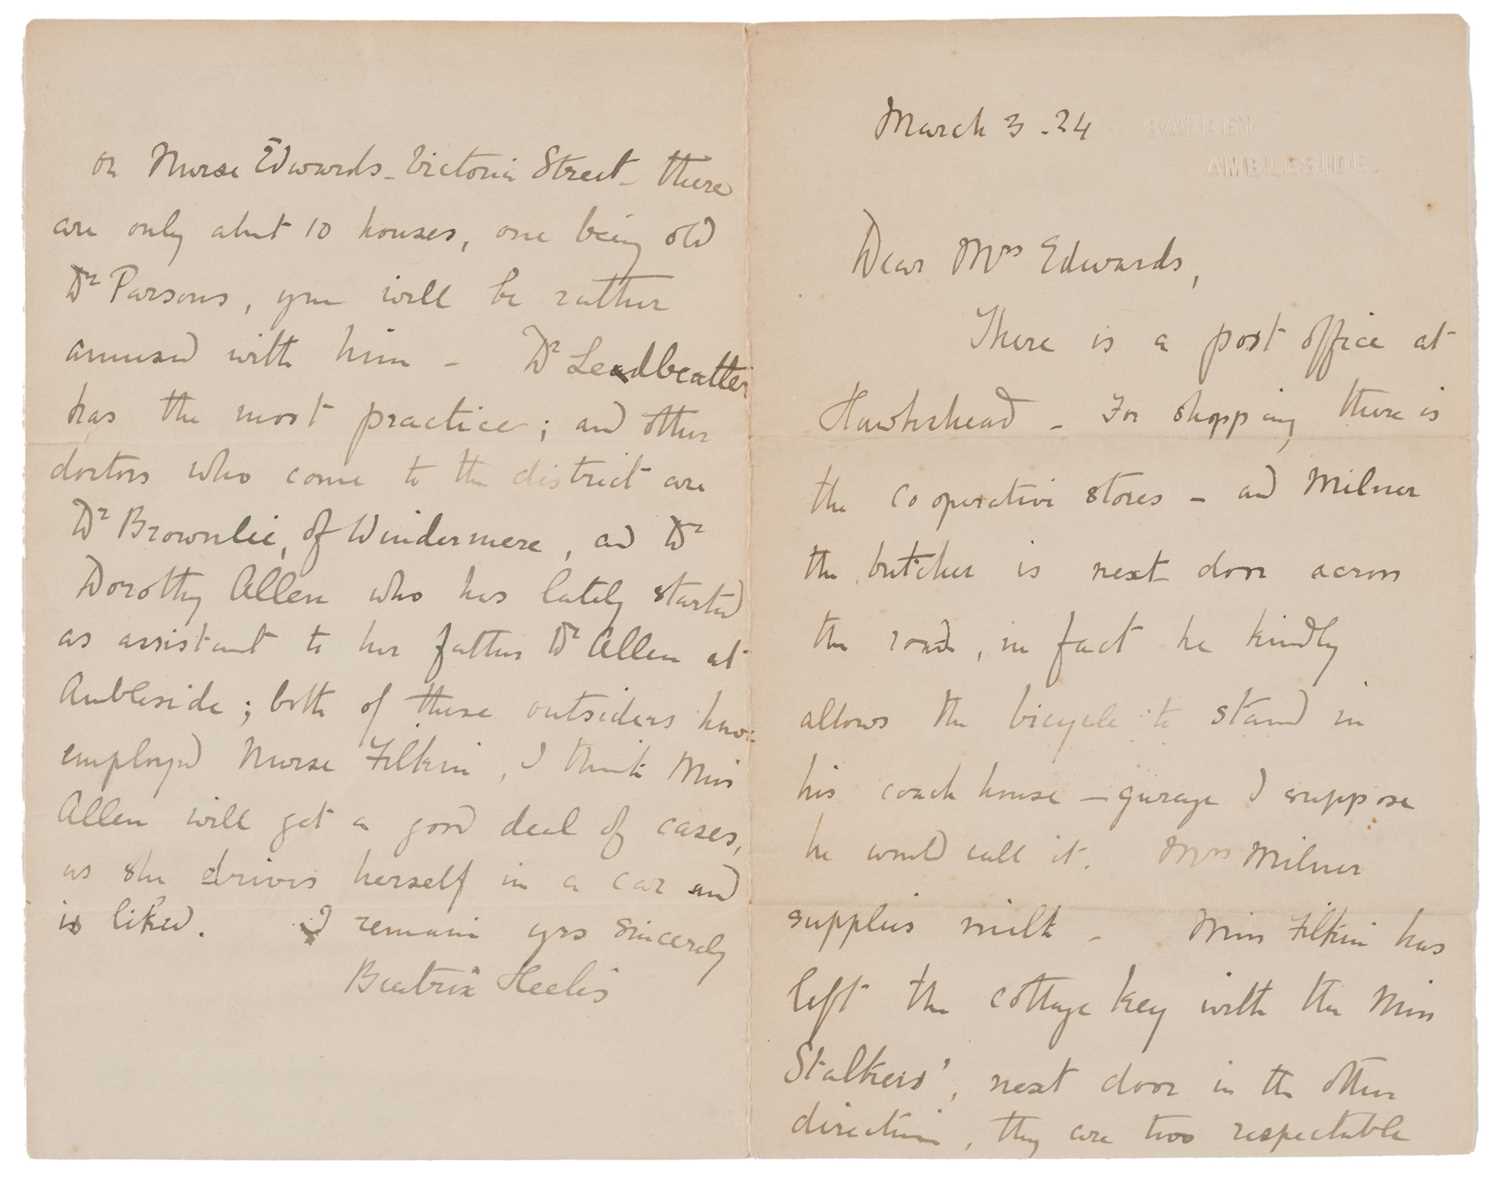 March 3 - 24
SAWREY
AMBLESIDE.
Dear Mrs Edwards,
There is a post office at
Hawkshead - For shopping there is
the cooperative stores - and Milner
the butcher is next door across
the road, in fact he kindly
allows the bicycle to stand in
his coach house - garage I suppose
he would call it. Mrs Milner
supplies milk - Miss Filkin has
left the cottage key with the Miss
Stalkers', next door in the other
direction, they are two respectable
on Nurse Edwards - Victoria Street - there
are only about 10 houses, one being old
Dr Parsons, you will be rather
amused with him - Dr Leadbeatter
has the most practice; and other
doctors who come to the district are
Dr Brownlie, of Windermere, and Dr
Dorothy Allen who has lately started
as assistant to her father Dr Allen at
Ambleside; both of these outsiders have
employed Nurse Filkin, I think Miss
Allen will get a good deal of cases,
as she drives herself in a car and
is liked. I remain yrs sincerely
Beatrix Heelis